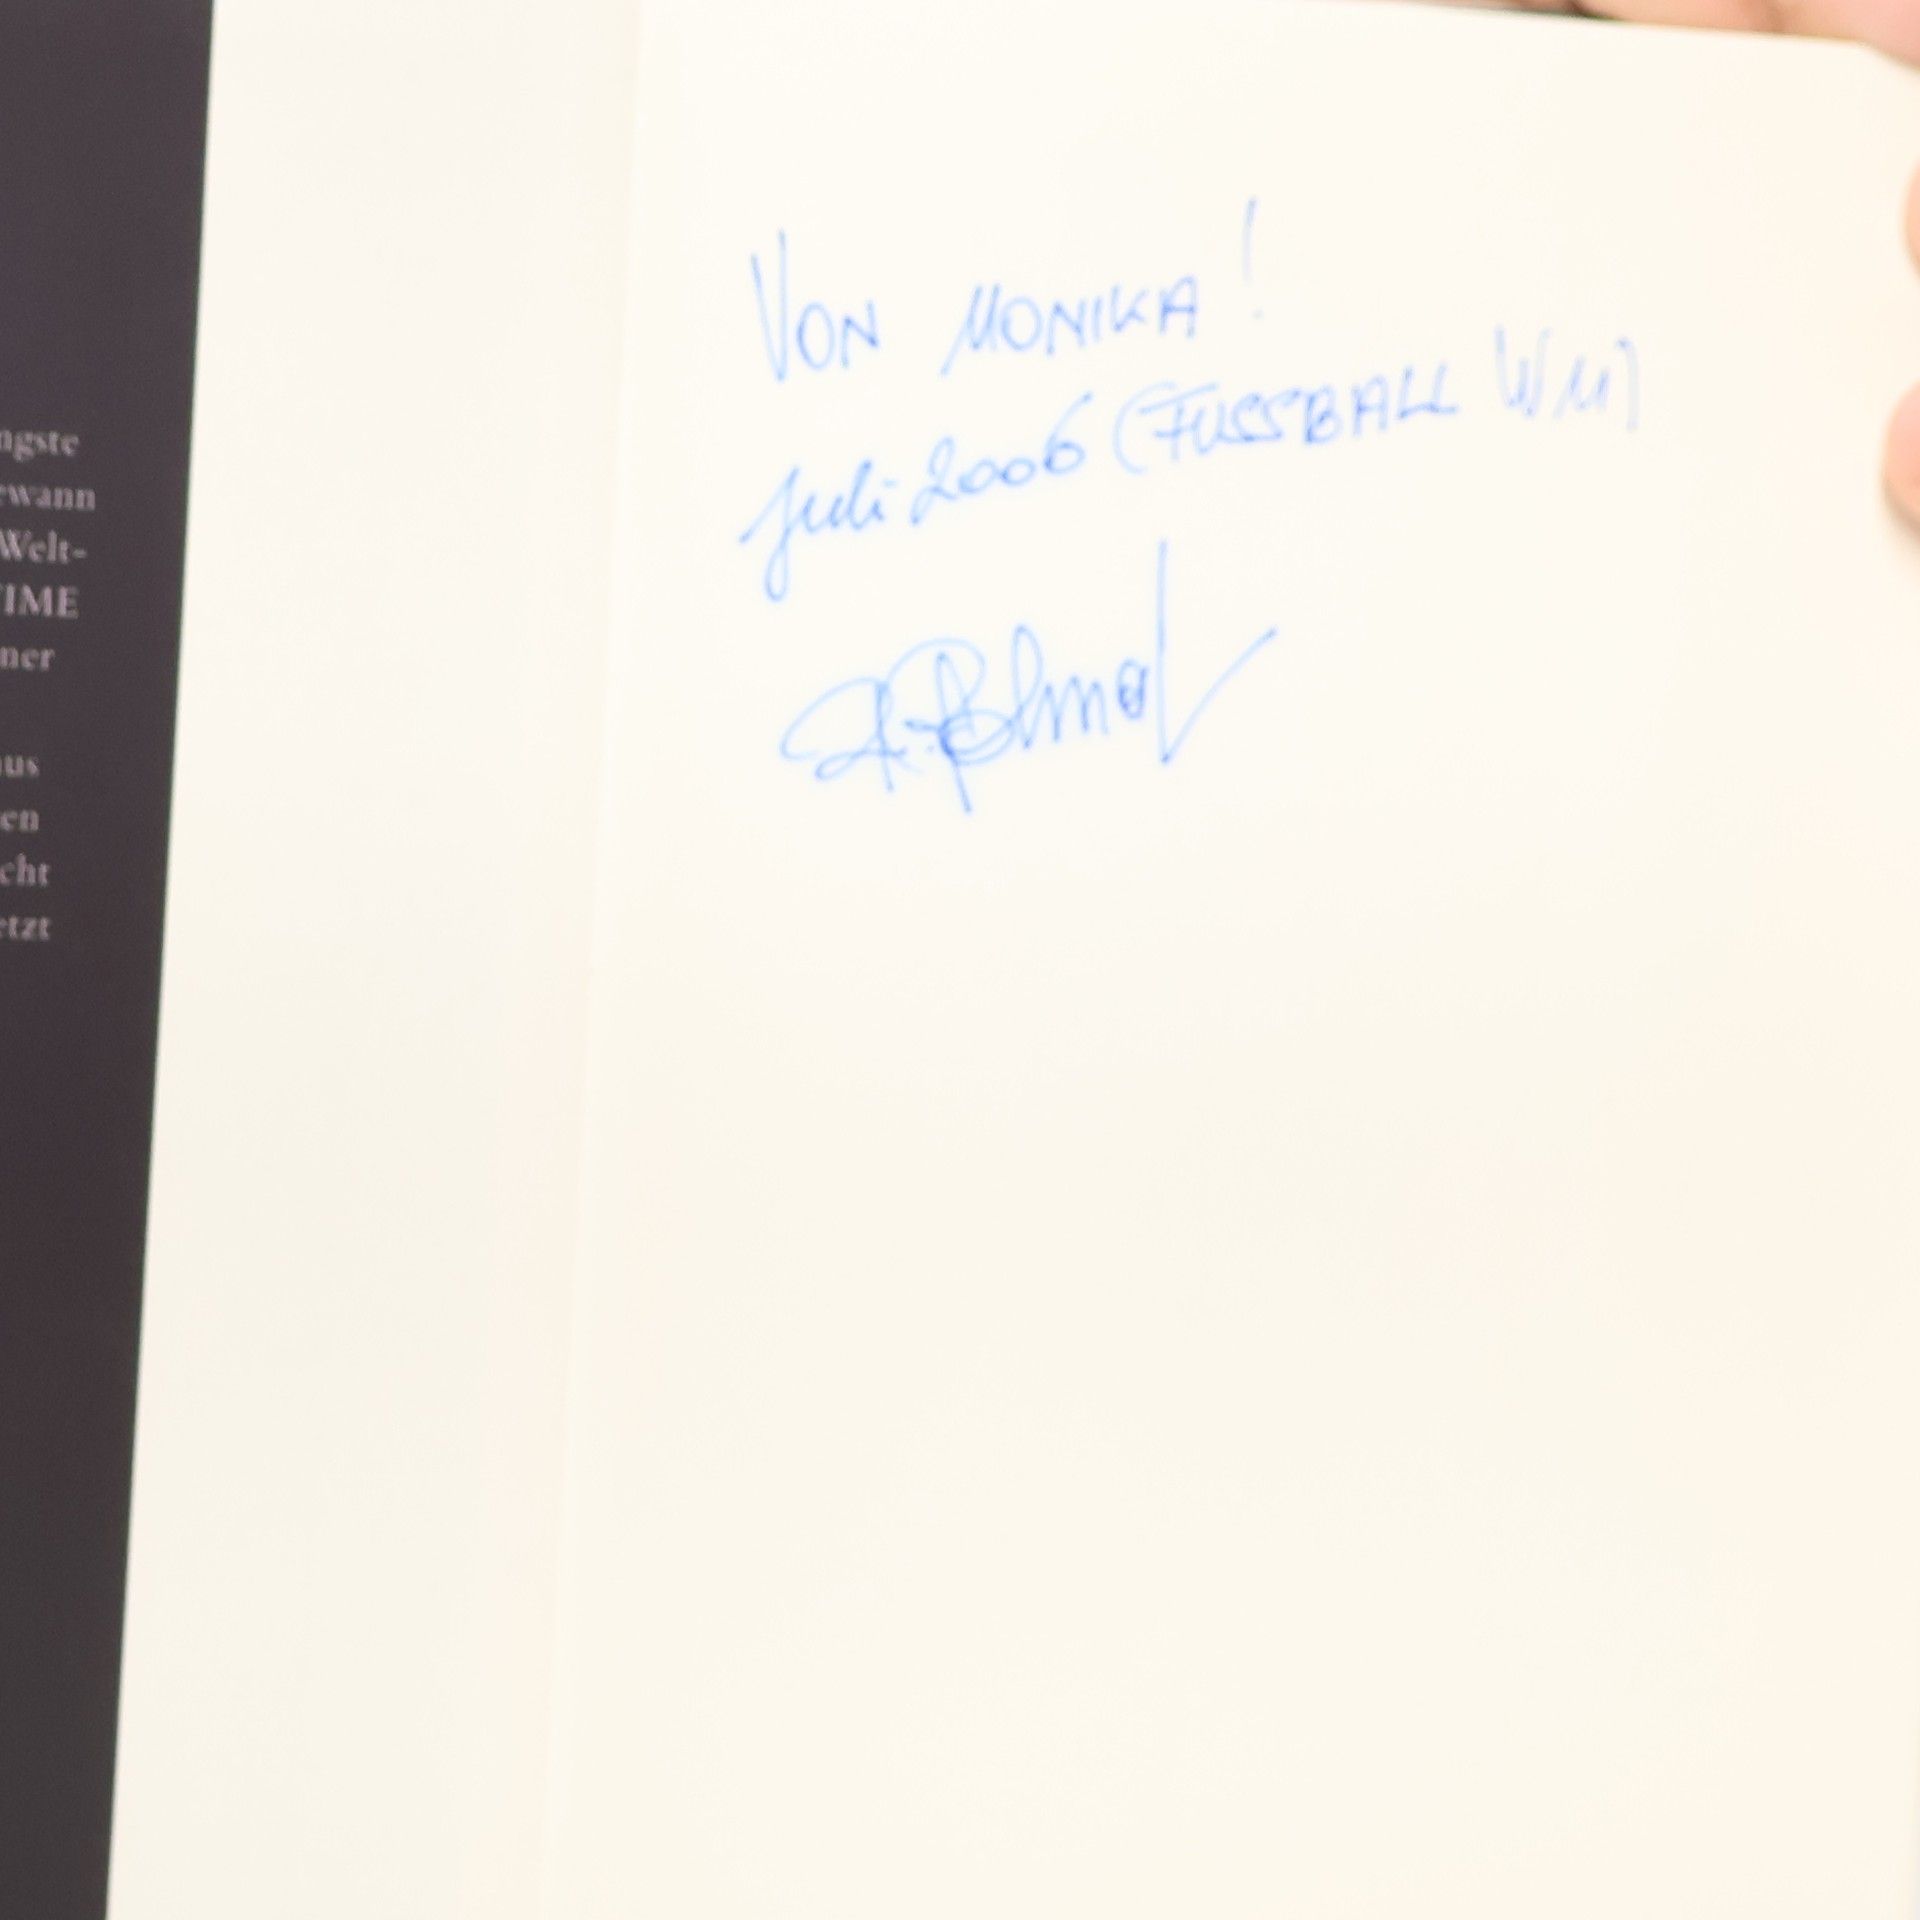 ngste
ewann
Welt-
TIME
ner
us
en
cht
etzt
VON MONIKA!
Juli 2006 (FUSSBALL WM)